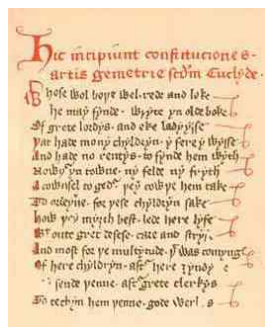 Hic incipiunt constituciones
artis gemetrie scdm Euclyde.
Whose wol boþe wel rede and loke
he may fynde wryte yn olde boke
Of grete lordys and eke ladyysse
Þat hade mony chyldryn y fere y wysse
And hade no rentys to fynde hem wyth
Nowþer yn towne ny felde ny fryth
A cownsel togedr þey cowþe hem take
To ordeyne for þese chyldryn sake
how þey myȝth best lede here lyfe
Wtoute gret desese care and stryf
And most for þe multytude þt was comyng
Of here chyldryn aftr here ȝyndy
sende þenne aftr grete clerkys
To techyn hem þenne gode werkys